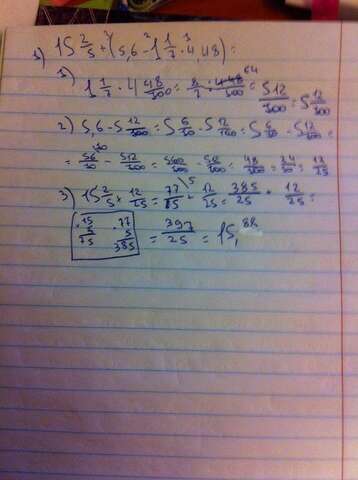 1) 15 2/5 + (5,6 - 1 1/7 · 4,48) =
1) 1 1/7 · 4 48/100 = 8/7 · 448/100 = 512/100 = 5 12/100
2) 5,6 - 5 12/100 = 5 6/10 - 5 12/100 = 5 6/10 - 5 12/100 =
= 56/10 - 512/100 = 560/100 - 512/100 = 48/100 = 24/50 = 12/25
3) 15 2/5 + 12/25 = 77/5 + 12/25 = 385/25 + 12/25 =
= 397/25 = 15,88
15 77
5 5
75 385